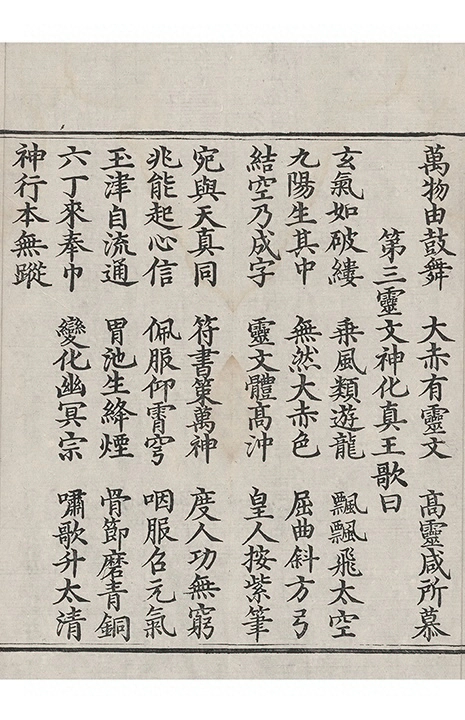 萬物由鼓舞 大赤有靈文 高靈咸所慕
第三靈文神化真王歌曰
玄氣如破縷 乗風類遊龍 飄飄飛太空
九陽生其中 無然大赤色 屈曲斜方弓
結空乃成字 靈文體高沖 皇人按紫筆
宛與天真同 符書策萬神 度人功無窮
兆能起心信 佩服仰霄穹 咽服召元氣
玉津自流通 胃池生絳煙 骨節磨青銅
六丁來奉巾 變化幽冥宗 嘯歌升太清
神行本無蹤